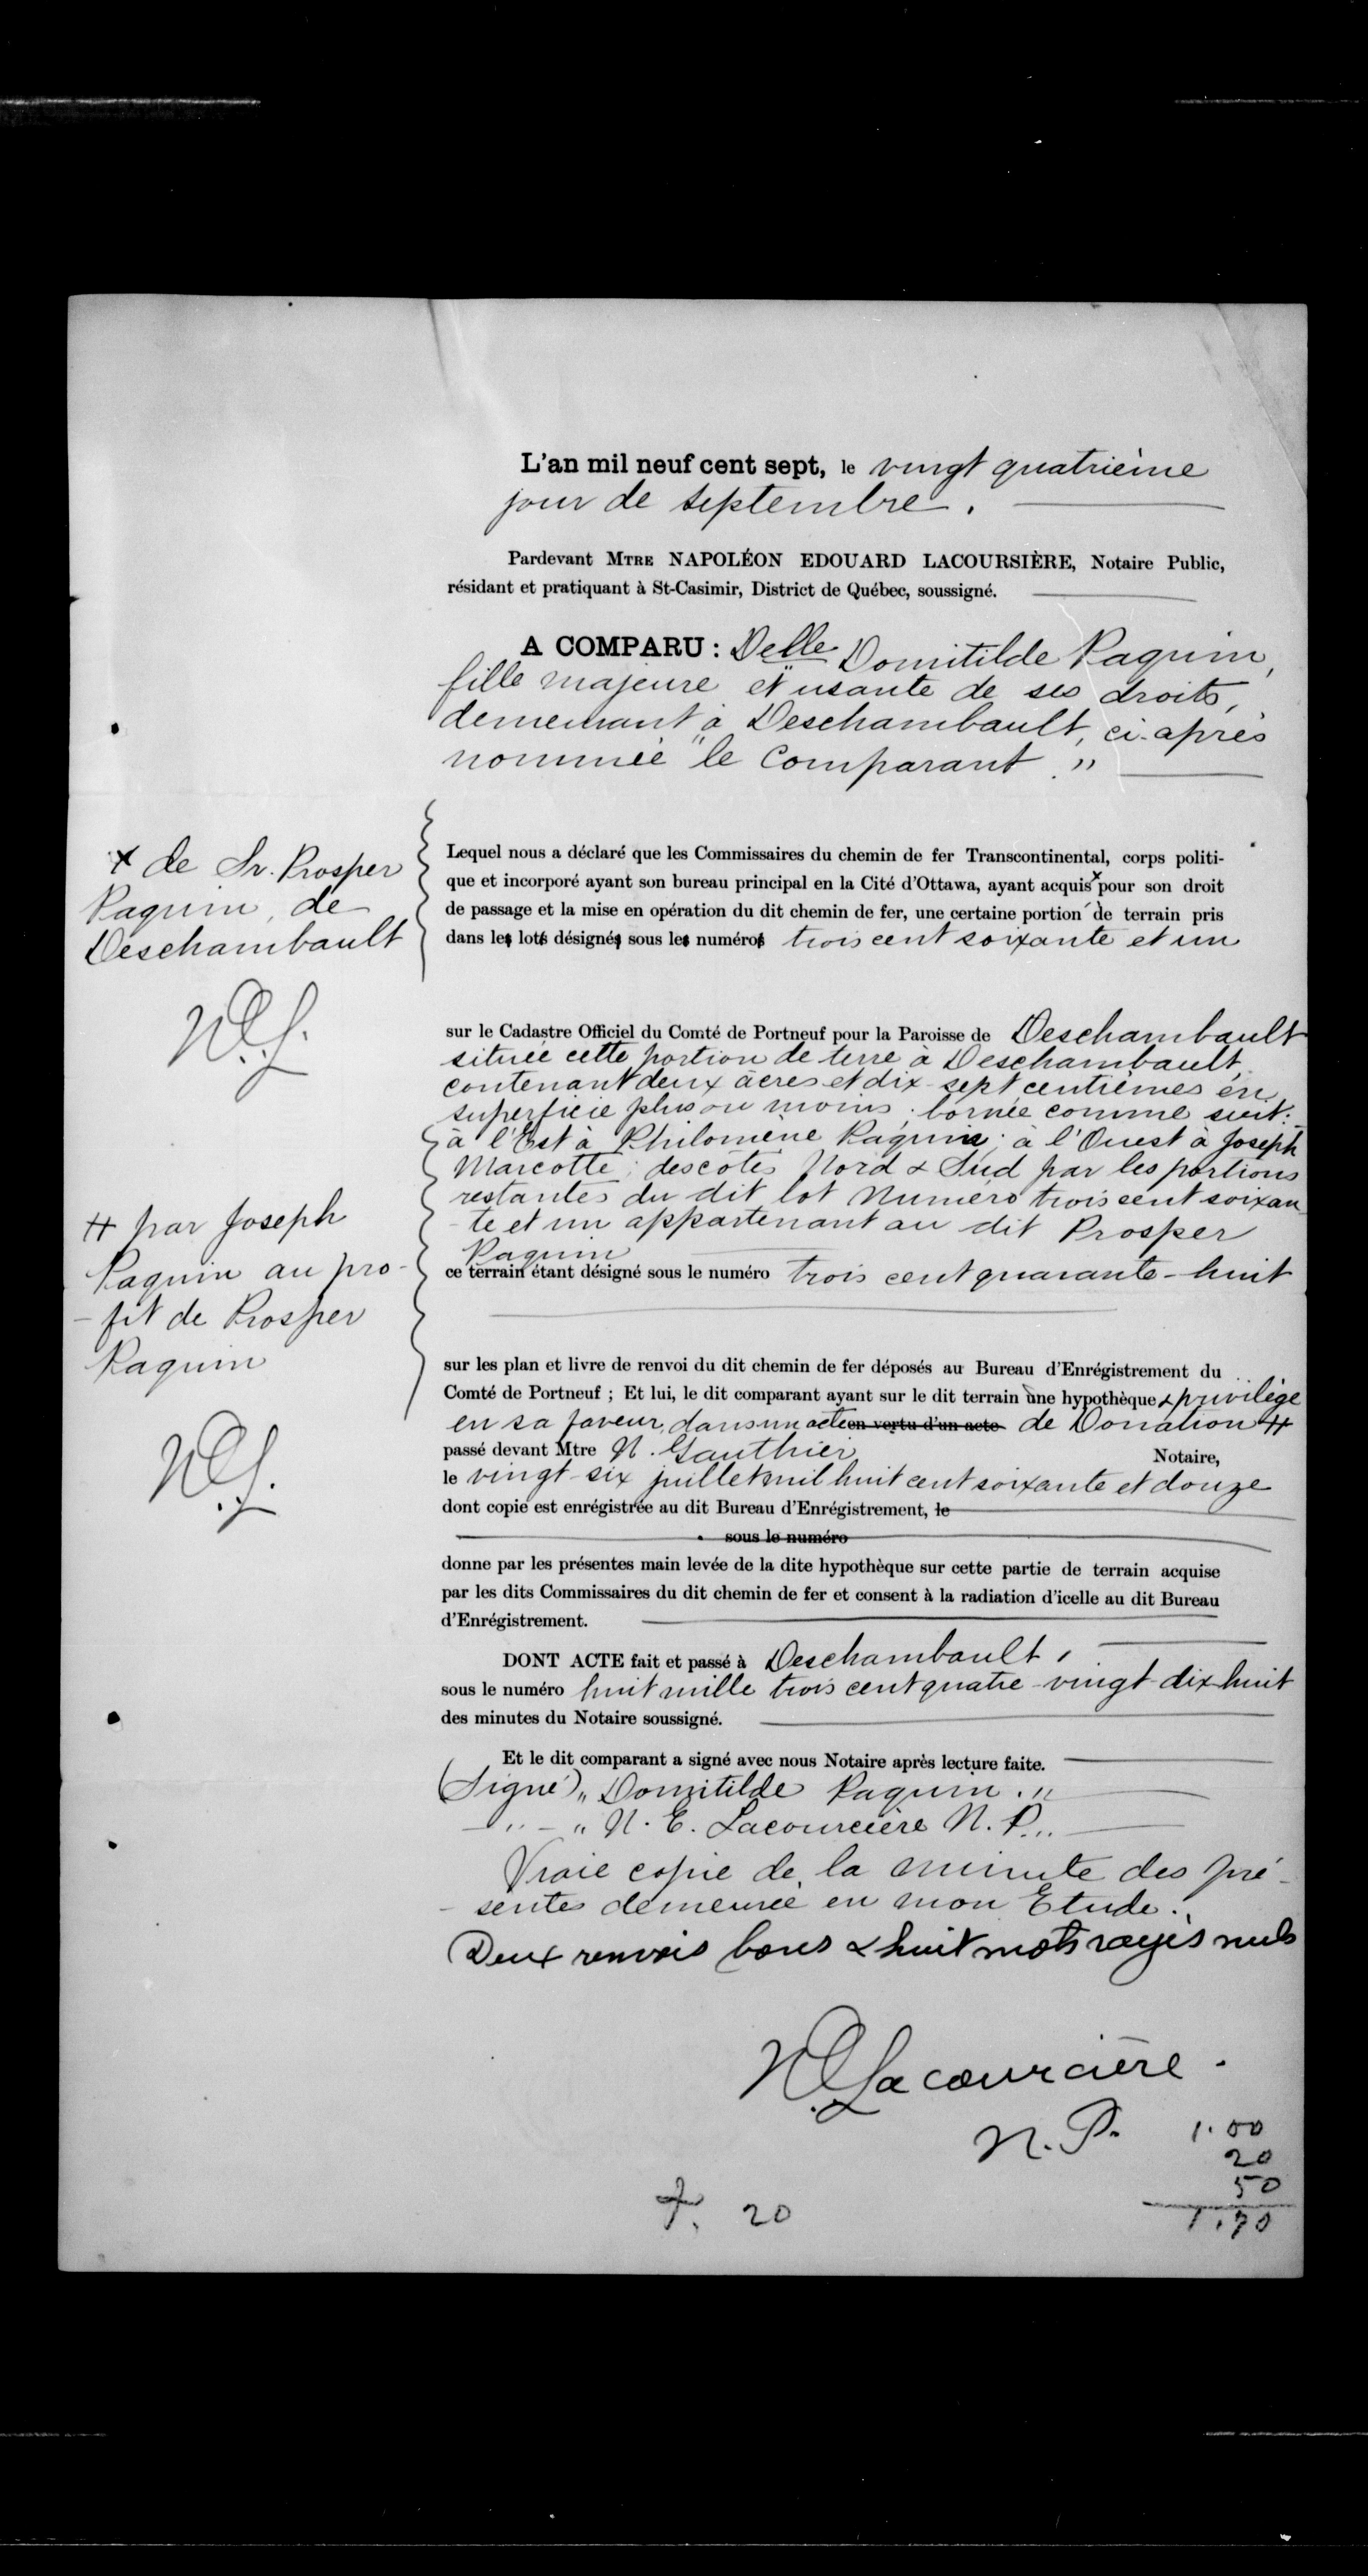 L'an mil neuf cent sept, le vingt quatrième
jour de septembre.
Pardevant MTRE NAPOLÉON EDOUARD LACOURSIÈRE, Notaire Public,
résidant et pratiquant à St-Casimir, District de Québec, soussigné.
A COMPARU : Delle Domitilde Paquin,
fille majeure et usante de ses droits,
demeurant à Deschambault, ci-après
nommée "le Comparant."
x de Sr. Prosper
Paquin, de
Deschambault
N.E.L.
Lequel nous a déclaré que les Commissaires du chemin de fer Transcontinental, corps politi-
que et incorporé ayant son bureau principal en la Cité d'Ottawa, ayant acquis x pour son droit
de passage et la mise en opération du dit chemin de fer, une certaine portion de terrain pris
dans les lots désignés sous les numéros trois cent soixante et un
sur le Cadastre Officiel du Comté de Portneuf pour la Paroisse de Deschambault
située cette portion de terre à Deschambault,
contenant deux âcres et dix-sept centièmes en
superficie plus ou moins ; bornée comme suit :
à l'Est à Philomène Paquin ; à l'Ouest à Joseph
Marcotte ; des côtés Nord & Sud par les portions
restantes du dit lot Numéro trois cent soixan
-te et un appartenant au dit Prosper
Paquin
ce terrain étant désigné sous le numéro trois cent quarante-huit
# par Joseph
Paquin au pro-
-fit de Prosper
Paquin
N.E.L.
sur les plan et livre de renvoi du dit chemin de fer déposés au Bureau d'Enrégistrement du
Comté de Portneuf ; Et lui, le dit comparant ayant sur le dit terrain une hypothèque & privilège
en sa faveur, dans un acte en vertu d'un acte de Donation #
passé devant Mtre N. Gauthier Notaire,
le vingt-six juillet mil huit cent soixante et douze
dont copie est enrégistrée au dit Bureau d'Enrégistrement, le
sous le numéro
donne par les présentes main levée de la dite hypothèque sur cette partie de terrain acquise
par les dits Commissaires du dit chemin de fer et consent à la radiation d'icelle au dit Bureau
d'Enrégistrement.
DONT ACTE fait et passé à Deschambault,
sous le numéro huit mille trois cent quatre-vingt-dix huit
des minutes du Notaire soussigné.
Et le dit comparant a signé avec nous Notaire après lecture faite.
(Signé) „ Domitilde Paquin. „
- „ - „ N. E. Lacourcière N. P. „
Vraie copie de la minute des pré-
-sentes demeurée en mon Etude.
Deux renvois bons & huit mots rayés nuls
N.E. Lacourcière.
N.P.
1.00
20
50
1.70
f. 20